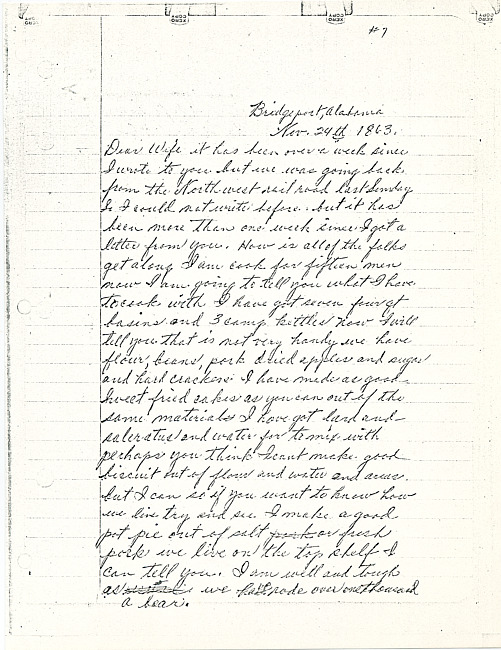 #7
Bridgeport, Alabama
Nov. 24th 1863.
Dear Wife it has been over a week since
I wrote to you but we was going back
from the North west rail road last Sunday
So I could not write before. but it has
been more than one week since I got a
letter from you. How is all of the folks
get along I am cook for fifteen men
now I am going to tell you what I have
to cook with I have got seven four qt
basins and 3 camp kettles now I will
tell you that is not very handy we have
flour, beans, pork dried apples and sugar
and hard crackers I have made as good
sweet fried cakes as you can out of the
same materials I have got lard and
saleratus and water for to mix with
perhaps you think I cant make good
biscuit out of flour and water and
but I can so if you want to know how
we live try and see I make a good
pot pie out of salt pork or fresh
pork we live on the top shelf I
can tell you. I am well and tough
as we rode over one thousand
a bear.